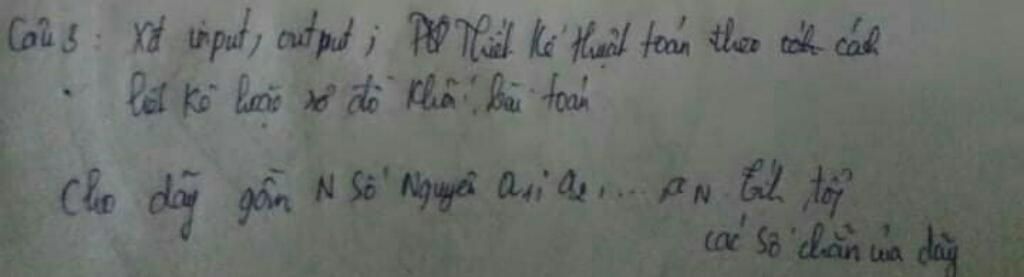 Câu 3: Xđ input, output; Thiết kế thuật toán theo cách
liệt kê hoặc sơ đồ khối bài toán
Cho dãy gồm N số nguyên a1, a2, ... aN. Tính tổng
các số chẵn của dãy